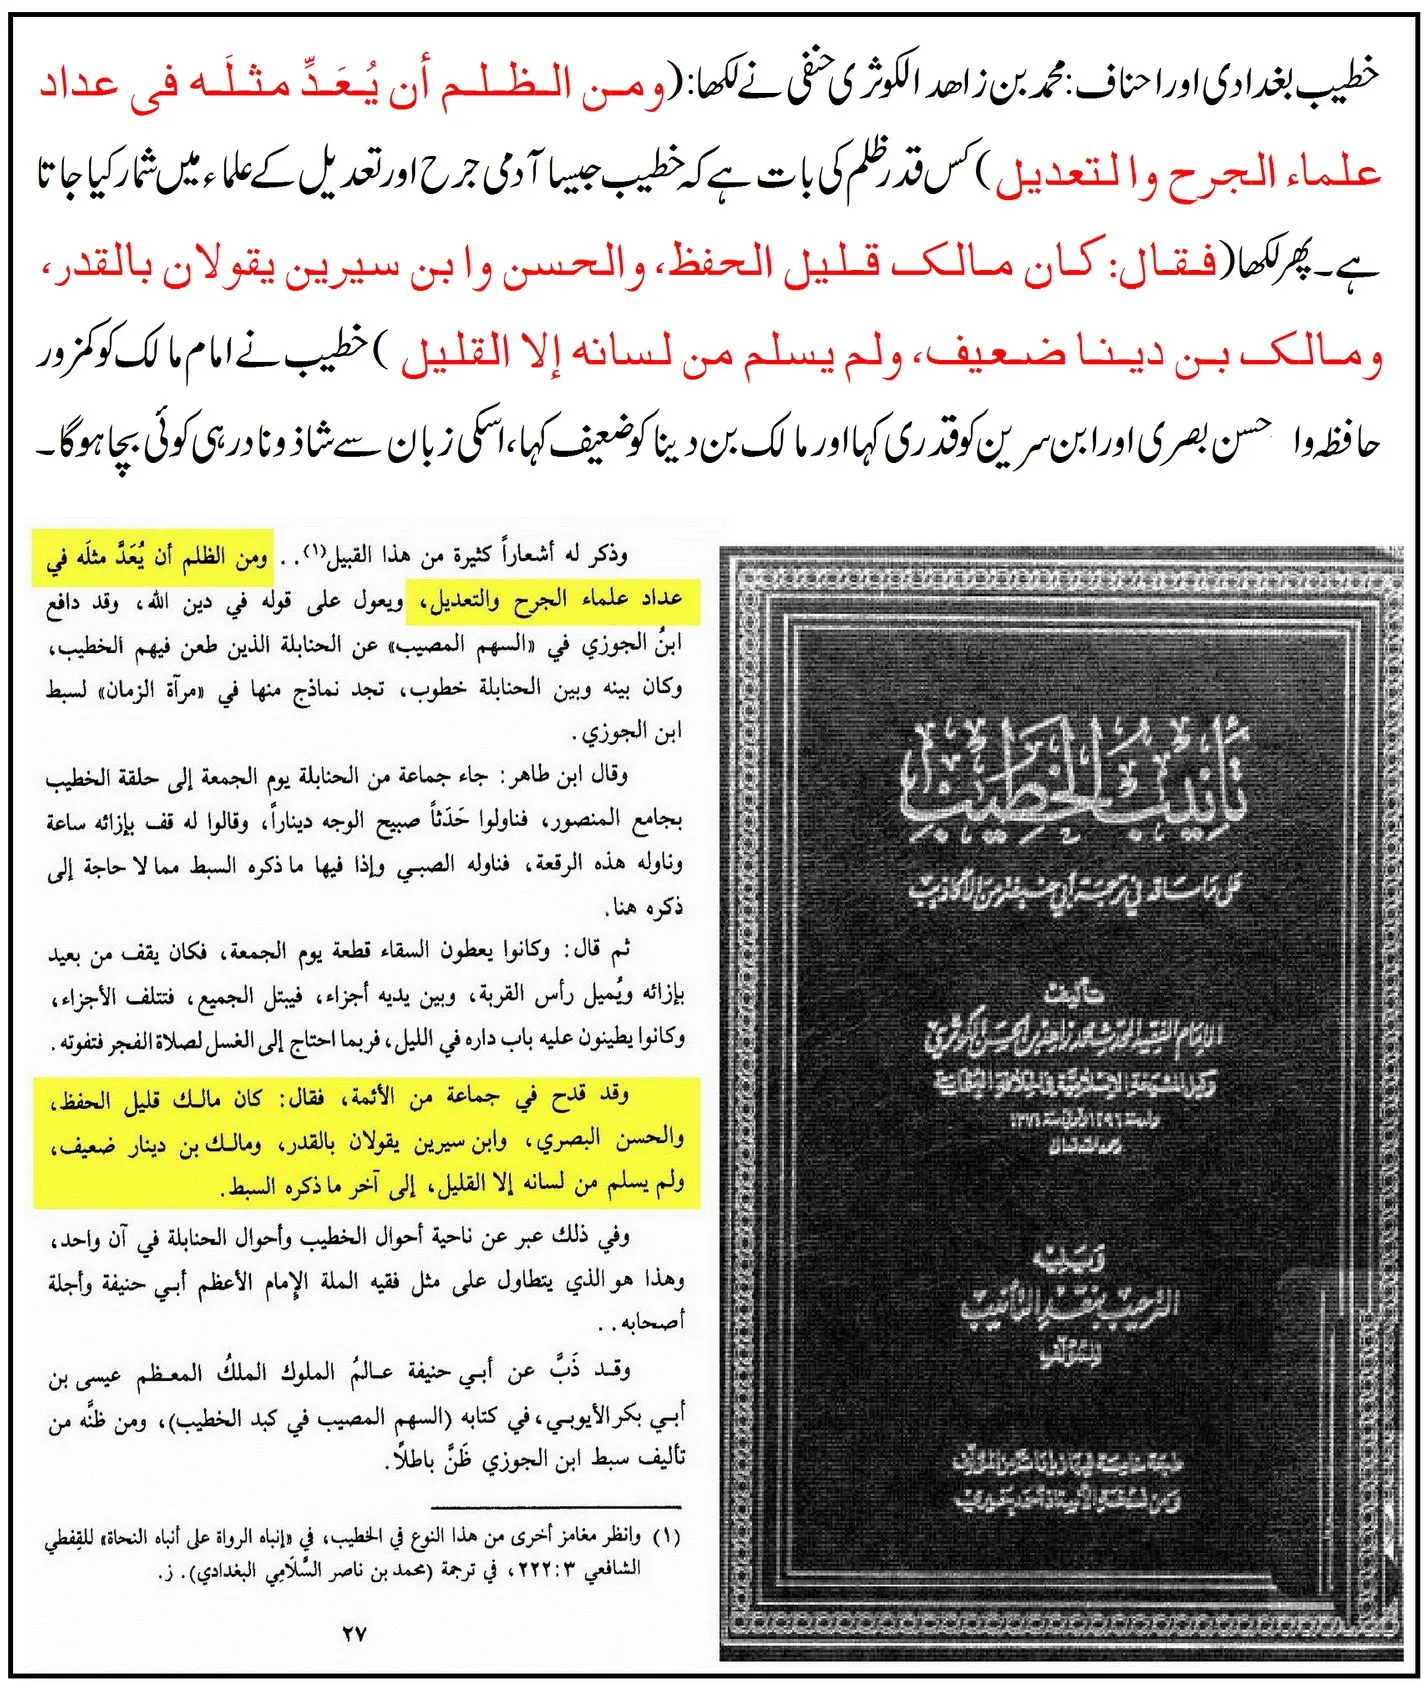 خطیب بغدادی اور احناف: محمد بن زاھد الکوثری حنفی نے لکھا: (ومن الظلم أن یُعَدِّ مثلَه فی عداد
علماء الجرح والتعدیل) کس قدر ظلم کی بات ہے کہ خطیب جیسا آدمی جرح اور تعدیل کے علماء میں شمار کیا جاتا
ہے۔ پھر لکھا (فقال: کان مالک قلیل الحفظ، والحسن وابن سیرین یقولان بالقدر،
ومالک بن دینا ضعیف، ولم یسلم من لسانه إلا القلیل) خطیب نے امام مالک کو کمزور
حافظہ وا حسن بصری اور ابن سرین کو قدری کہا اور مالک بن دینا کو ضعیف کہا، اسکی زبان سے شاذ و نادر ہی کوئی بچا ہوگا۔
وذكر له أشعاراً كثيرة من هذا القبيل(١).. ومن الظلم أن يُعَدَّ مثلَه في
عداد علماء الجرح والتعديل، ويعول على قوله في دين الله، وقد دافع
ابنُ الجوزي في «السهم المصيب» عن الحنابلة الذين طعن فيهم الخطيب،
وكان بينه وبين الحنابلة خطوب، تجد نماذج منها في «مرآة الزمان» لسبط
ابن الجوزي.
وقال ابن طاهر: جاء جماعة من الحنابلة يوم الجمعة إلى حلقة الخطيب
بجامع المنصور، فناولوا حَدَثاً صبيح الوجه ديناراً، وقالوا له قف بإزائه ساعة
وناوله هذه الرقعة، فناوله الصبي وإذا فيها ما ذكره السبط مما لا حاجة إلى
ذكره هنا.
ثم قال: وكانوا يعطون السقاء قطعة يوم الجمعة، فكان يقف من بعيد
بإزائه ويُميل رأس القربة، وبين يديه أجزاء، فيبتل الجميع، فتتلف الأجزاء،
وكانوا يطينون عليه باب داره في الليل، فربما احتاج إلى الغسل لصلاة الفجر فتفوته.
وقد قدح في جماعة من الأئمة، فقال: كان مالك قليل الحفظ،
والحسن البصري، وابن سيرين يقولان بالقدر، ومالك بن دينار ضعيف،
ولم يسلم من لسانه إلا القليل، إلى آخر ما ذكره السبط.
وفي ذلك عبر عن ناحية أحوال الخطيب وأحوال الحنابلة في آن واحد،
وهذا هو الذي يتطاول على مثل فقيه الملة الإمام الأعظم أبي حنيفة وأجلة
أصحابه..
وقد ذَبَّ عن أبي حنيفة عالمُ الملوك الملكُ المعظم عيسى بن
أبي بكر الأيوبي، في كتابه (السهم المصيب في كبد الخطيب)، ومن ظنَّه من
تأليف سبط ابن الجوزي ظَنَّ باطلًا.
(١) وانظر مغامز أخرى من هذا النوع في الخطيب، في «إنباه الرواة على أنباه النحاة» للقِفطي
الشافعي ٣:٢٢٢، في ترجمة (محمد بن ناصر السَّلَامي البغدادي). ز.
٢٧
تأنيب الخطيب
على ما ساقه في ترجمة أبي حنيفة من الأكاذيب
تأليف
الإمام الفقيه المحدث محمد زاهد بن الحسن الكوثري
وكيل المشيخة الإسلامية في الخلافة العثمانية
ولد سنة ١٢٩٦ وتوفي سنة ١٣٧١
رحمه الله تعالى
ويليه
الترحيب بنقد التأنيب
للمؤلف